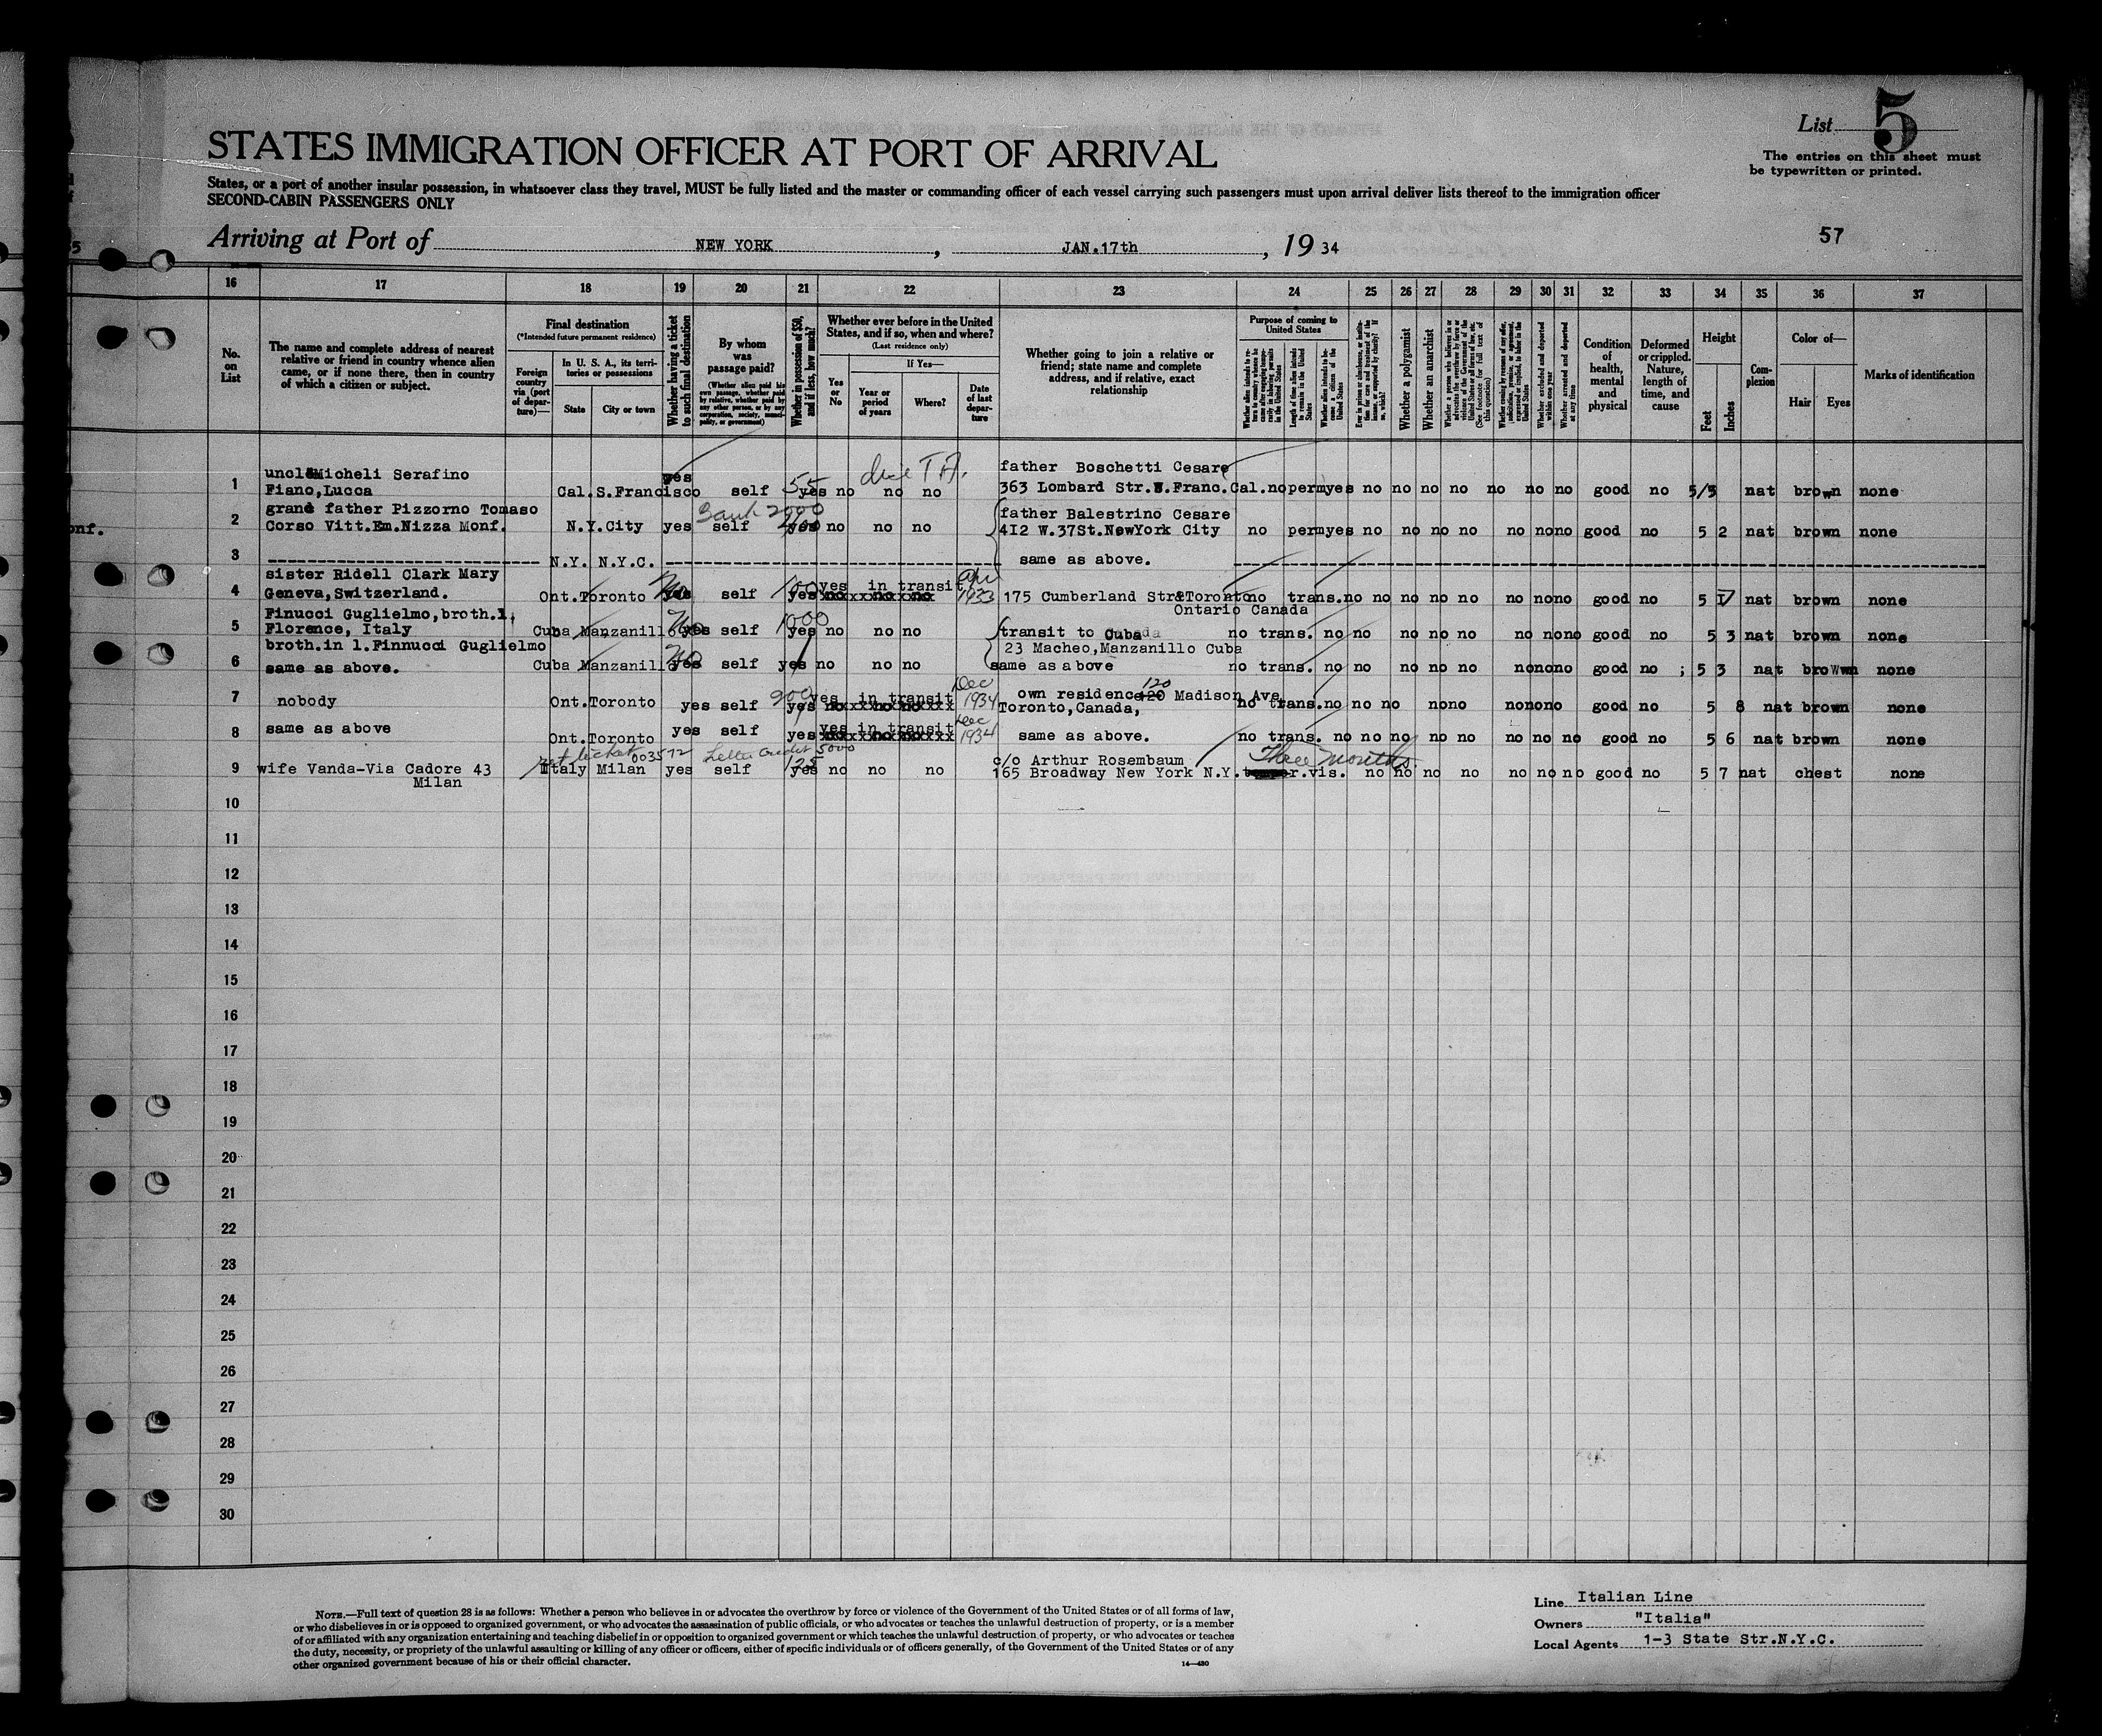 List 5
The entries on this sheet must
be typewritten or printed.
STATES IMMIGRATION OFFICER AT PORT OF ARRIVAL
States, or a port of another insular possession, in whatsoever class they travel, MUST be fully listed and the master or commanding officer of each vessel carrying such passengers must upon arrival deliver lists thereof to the immigration officer
SECOND-CABIN PASSENGERS ONLY
Arriving at Port of NEW YORK, JAN.17th, 19 34
57
16 17 18 19 20 21 22 23 24 25 26 27 28 29 30 31 32 33 34 35 36 37
No. on List
The name and complete address of nearest
relative or friend in country whence alien
came, or if none there, then in country
of which a citizen or subject.
Final destination
(*Intended future permanent residence)
Foreign country via (port of departure)—
In U. S. A., its territories or possessions
State City or town
Whether having a ticket to such final destination
By whom was passage paid?
(Whether alien paid his own passage, whether paid by relative, whether paid by any other person, or by any corporation, society, municipality, or government)
Whether in possession of $50, and if less, how much?
Whether ever before in the United
States, and if so, when and where?
(Last residence only)
Yes or No
If Yes—
Year or period of years
Where?
Date of last departure
Whether going to join a relative or
friend; state name and complete
address, and if relative, exact
relationship
Purpose of coming to United States
Length of time alien intends to remain in the United States
Whether alien intends to become a citizen of the United States
Whether a polygamist
Whether an anarchist
Whether excluded and deported within one year
Whether arrested and deported at any time
Condition of health, mental and physical
Deformed or crippled. Nature, length of time, and cause
Height
Feet Inches
Complexion
Color of—
Hair Eyes
Marks of identification
1 uncle Micheli Serafino yes father Boschetti Cesare
Fiano,Lucca Cal. S.Francisco self 55 yes no no no 363 Lombard Str.S.Franc.Cal. no perm yes no no no no no no no good no 5/5 nat brown none
2 grand father Pizzorno Tomaso Bank 2000 father Balestrino Cesare
Corso Vitt.Em.Nizza Monf. N.Y.City yes self yes no no no 4I2 W.37St.NewYork City no perm yes no no no no no no no good no 5 2 nat brown none
3 N.Y. N.Y.C. same as above.
4 sister Ridell Clark Mary yes in transit
Geneva,Switzerland. Ont.Toronto No self 100 yes 1933 175 Cumberland Str Toronto no trans. no no no no no no no no good no 5 nat brown none
Ontario Canada
5 Finucci Guglielmo,broth.l. 1000
Florence, Italy Cuba Manzanillo No yes self yes no no no transit to Cuba no trans. no no no no no no no no good no 5 3 nat brown none
6 broth.in l.Finnucci Guglielmo 23 Macheo,Manzanillo Cuba
same as above. Cuba Manzanillo No yes self yes no no no same as above no trans. no no no no no no no no good no ; 5 3 nat brown none
7 nobody Ont.Toronto yes self 900 yes yes in transit Dec 1934 own residence 120 Madison Ave
Toronto,Canada, no trans. no no no no no no no no good no 5 8 nat brown none
8 same as above Ont.Toronto yes self yes yes in transit Dec 1934 same as above. no trans. no no no no no no no no good no 5 6 nat brown none
ret ticket 003572 Letter Credit 5000 Three months.
9 wife Vanda-Via Cadore 43 Italy Milan yes self 125 yes no no no c/o Arthur Rosembaum
Milan 165 Broadway New York N.Y. vis. no no no no no no no good no 5 7 nat chest none
10
11
12
13
14
15
16
17
18
19
20
21
22
23
24
25
26
27
28
29
30
NOTE.—Full text of question 28 is as follows: Whether a person who believes in or advocates the overthrow by force or violence of the Government of the United States or of all forms of law,
or who disbelieves in or is opposed to organized government, or who advocates the assassination of public officials, or who advocates or teaches the unlawful destruction of property, or is a member
of or affiliated with any organization entertaining and teaching disbelief in or opposition to organized government or which teaches the unlawful destruction of property, or who advocates or teaches
the duty, necessity, or propriety of the unlawful assaulting or killing of any officer or officers, either of specific individuals or of officers generally, of the Government of the United States or of any
other organized government because of his or their official character.
14—430
Line Italian Line
Owners "Italia"
Local Agents 1-3 State Str.N.Y.C.